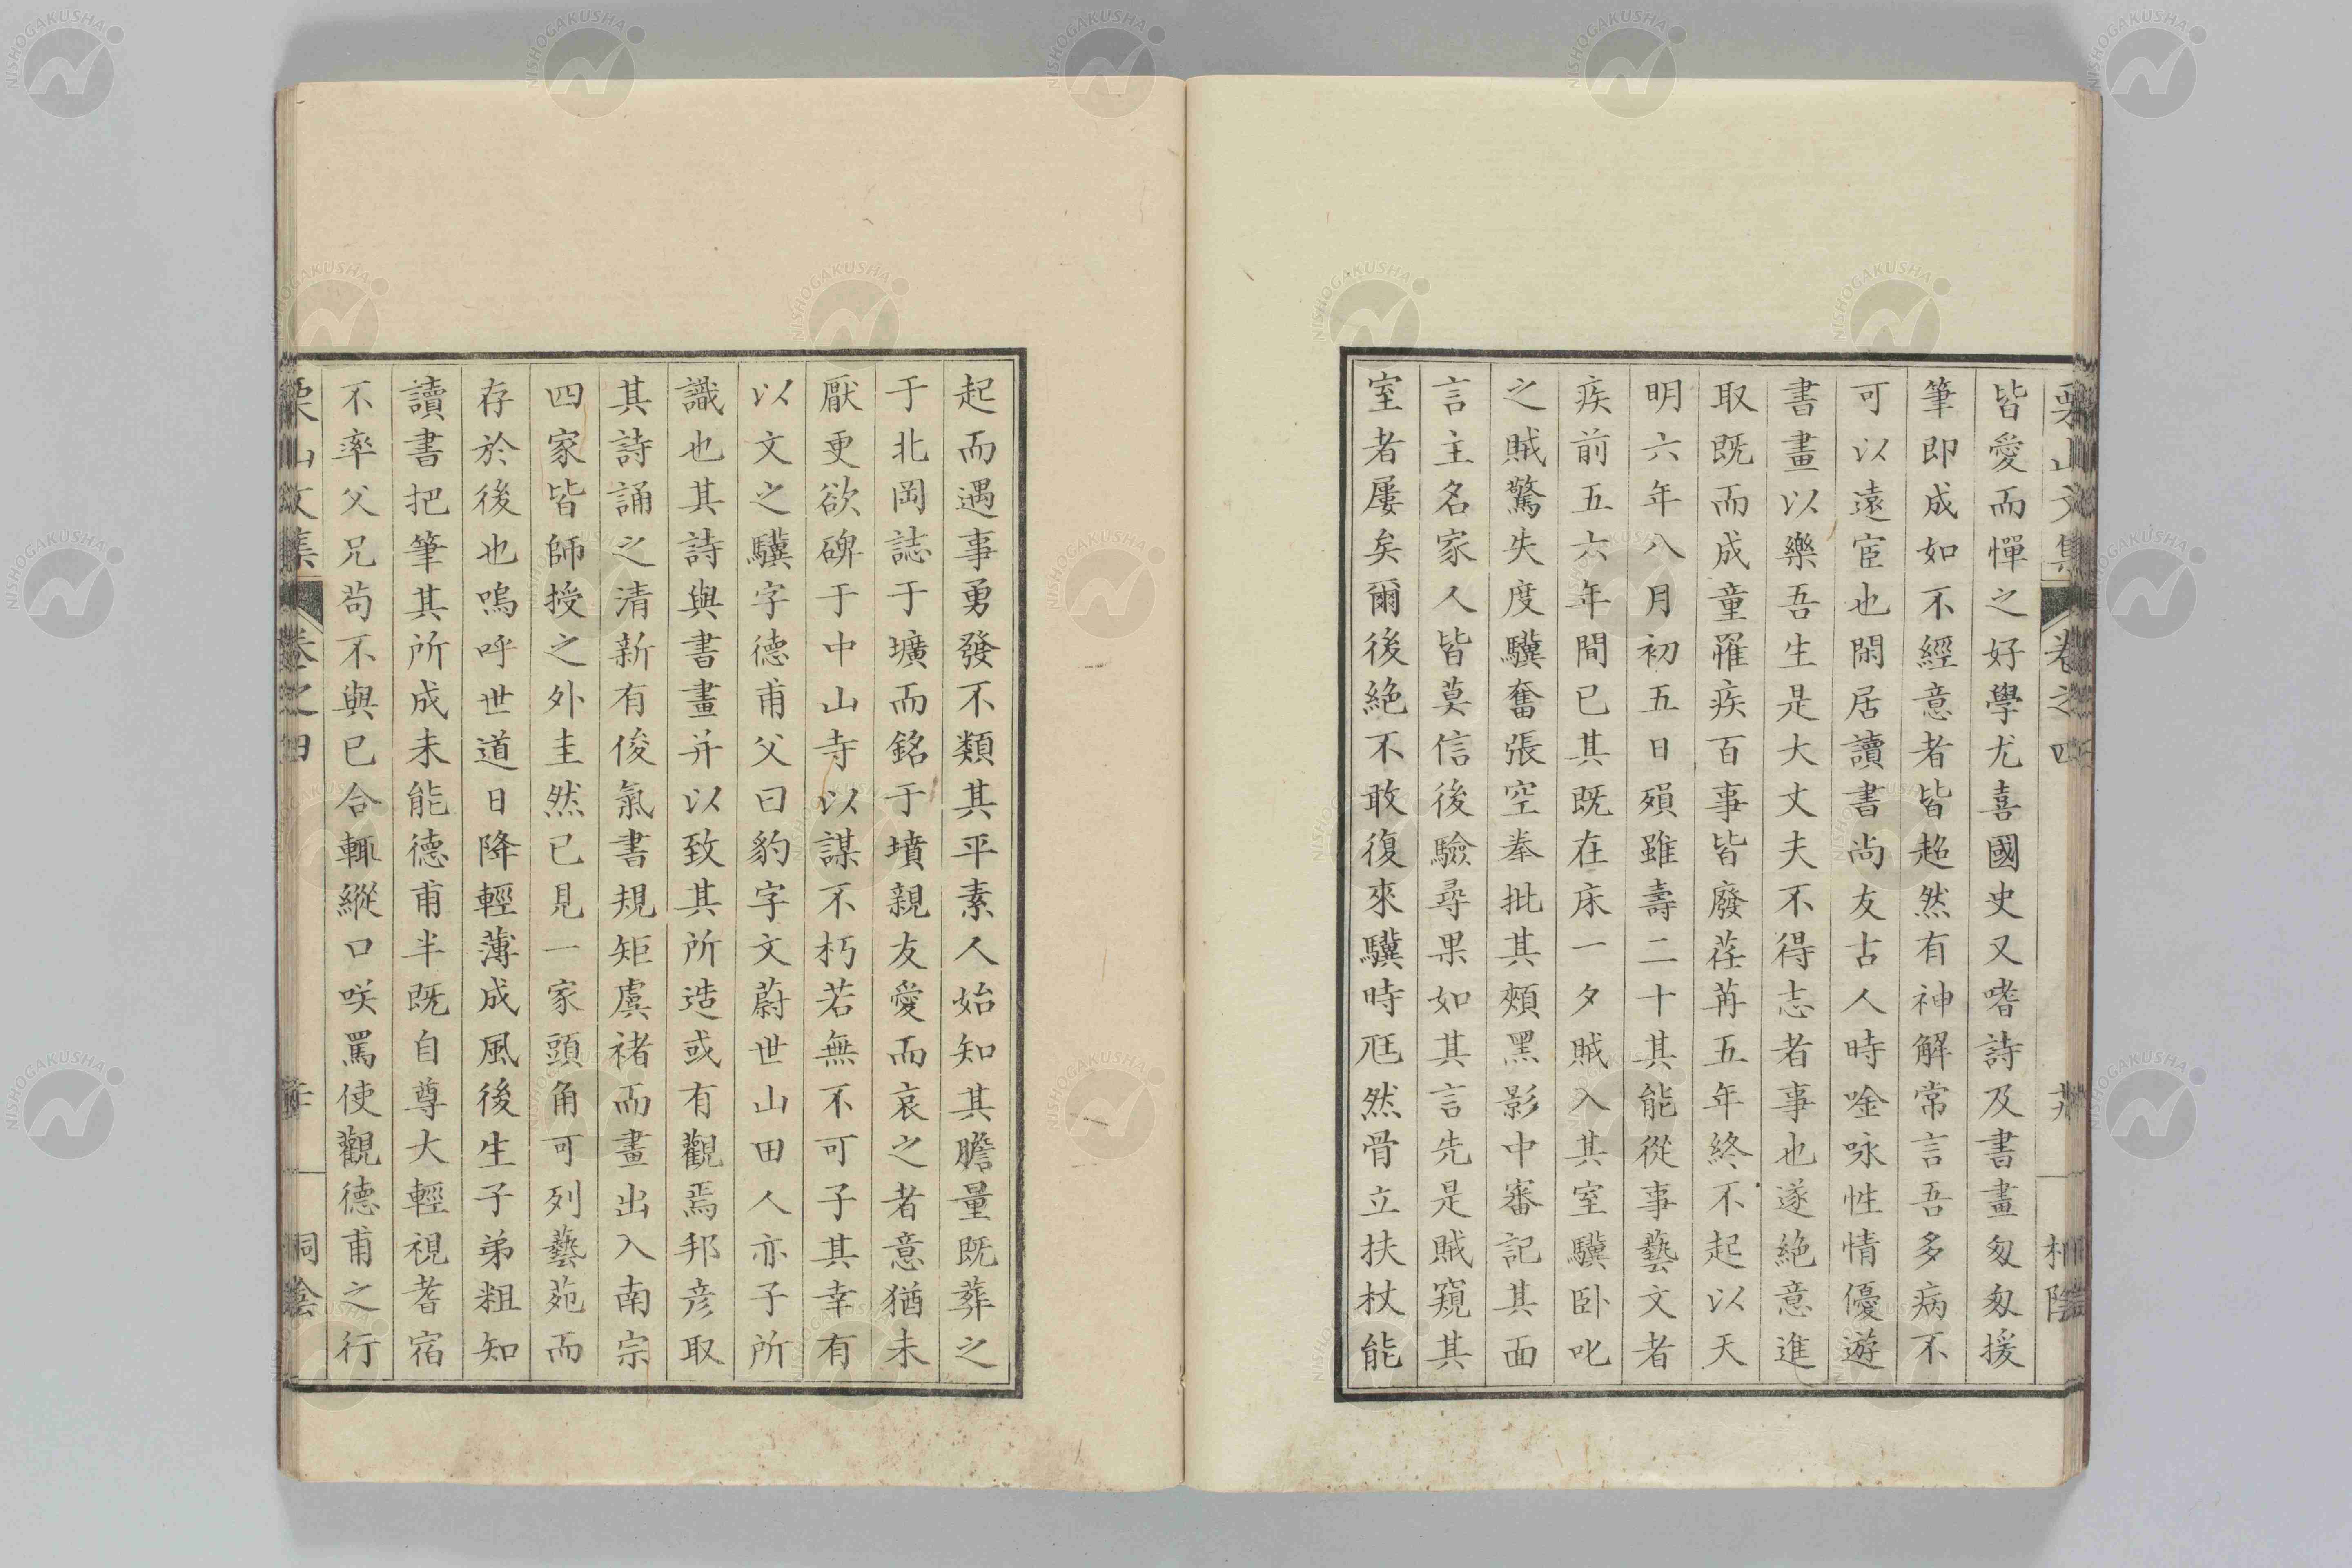 栗山文集 卷之四
皆愛而憚之好學尤喜國史又嗜詩及書畫匆匆援
筆即成如不經意者皆超然有神解常言吾多病不
可以遠宦也閑居讀書尚友古人時唫咏性情優遊
書畫以樂吾生是大丈夫不得志者事也遂絶意進
取既而成童罹疾百事皆廢荏苒五年終不起以天
明六年八月初五日殞雖壽二十其能從事藝文者
疾前五六年間已其既在床一夕賊入其室驥卧叱
之賊驚失度驥奮張空拳批其頰黑影中審記其面
言主名家人皆莫信後驗尋果如其言先是賊窺其
室者屢矣爾後絶不敢復來驥時尫然骨立扶杖能
起而遇事勇發不類其平素人始知其膽量既葬之
于北岡誌于壙而銘于墳親友愛而哀之者意猶未
厭更欲碑于中山寺以謀不朽若無不可子其幸有
以文之驥字德甫父曰豹字文蔚世山田人亦子所
識也其詩與書畫并以致其所造或有觀焉邦彦取
其詩誦之清新有俊氣書規矩虞褚而畫出入南宗
四家皆師授之外圭然已見一家頭角可列藝苑而
存於後也嗚呼世道日降輕薄成風後生子弟粗知
讀書把筆其所成未能德甫半既自尊大輕視耆宿
不率父兄苟不與已合輒縱口咲罵使觀德甫之行
栗山文集 卷之四
NISHOGAKUSHA